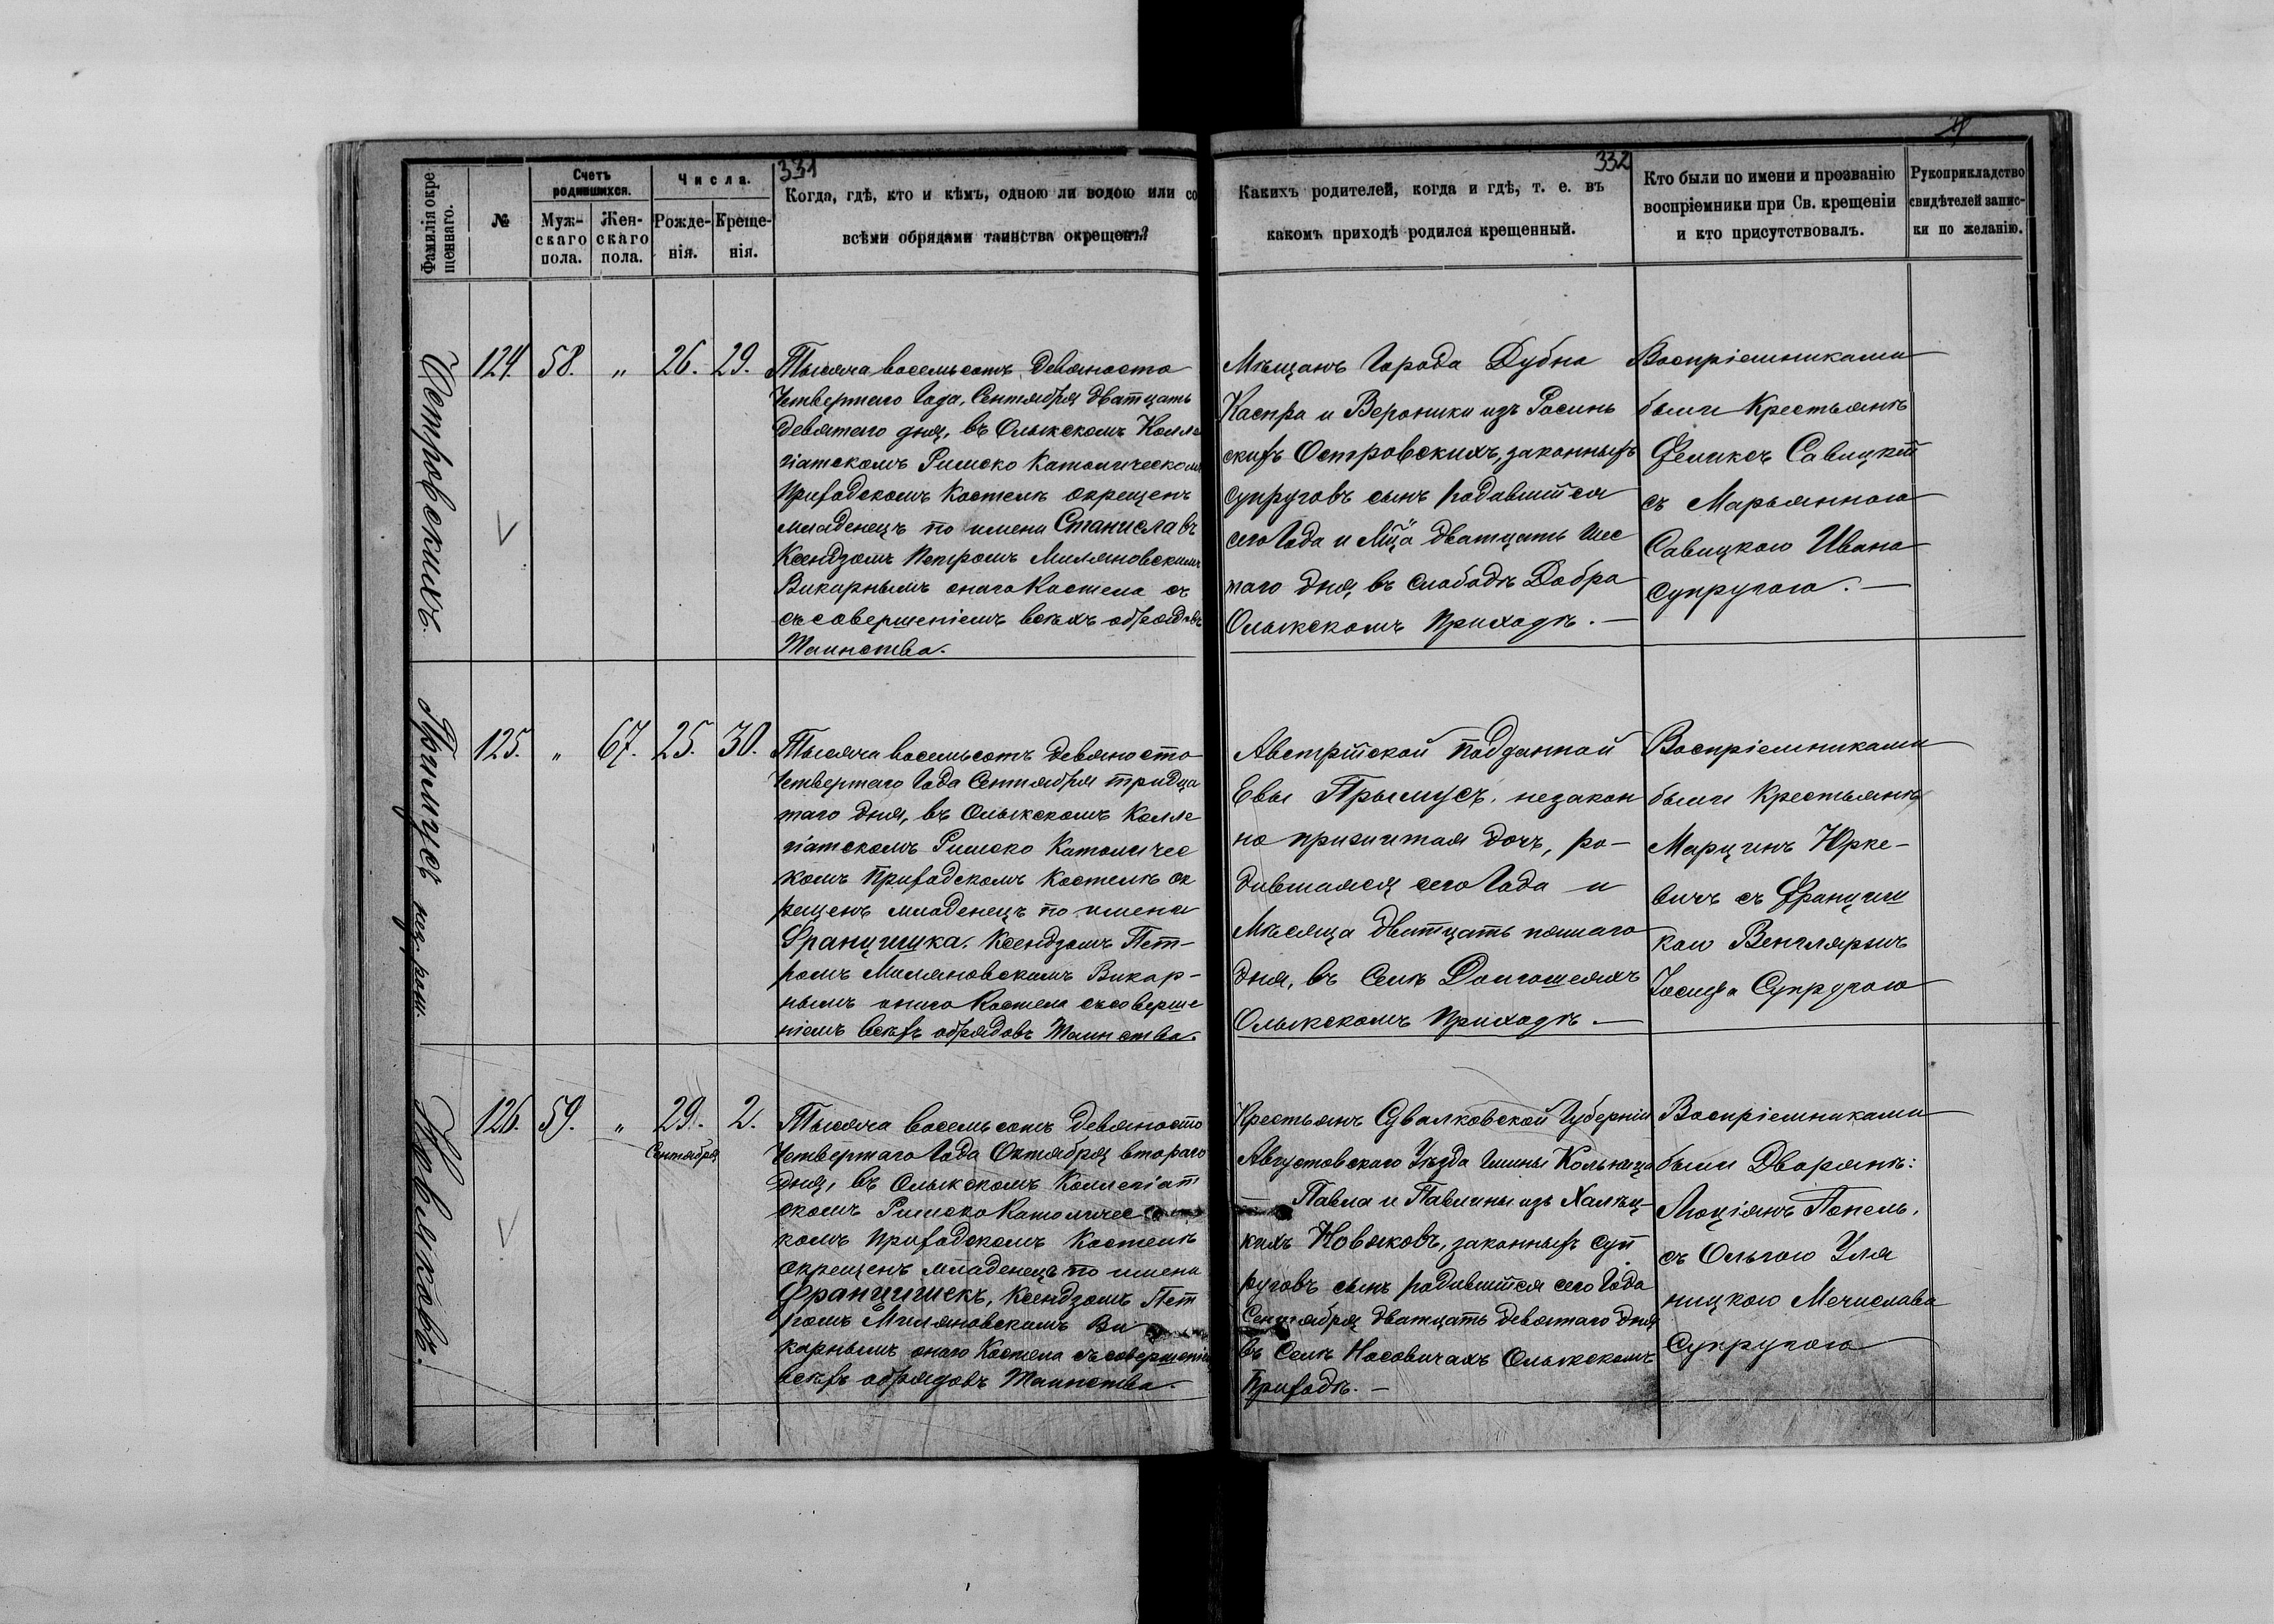 331
332
Фамилія окре
щеннаго.
№
Счетъ
родившихся.
Муж-
скаго
пола.
Жен-
скаго
пола.
Числа.
Рожде-
нія.
Креще-
нія.
Когда, гдѣ, кто и кѣмъ, одною ли водою или со
всѣми обрядами таинства окрещенъ?
Какихъ родителей, когда и гдѣ, т. е. въ
какомъ приходѣ родился крещенный.
Кто были по имени и прозванію
воспріемники при Св. крещеніи
и кто присутствовалъ.
Рукоприкладство
свидѣтелей запис-
ки по желанію.
Островскихъ.
124. 58. „ 26. 29.
Тысяча восемьсотъ девяносто
четвертаго Года, Сентября дватцать
девятаго дня, въ Олыкскомъ Колле
гіатскомъ Римско Католическомъ
Приходскомъ Костелѣ окрещенъ
младенецъ по имени Станиславъ
Ксендзомъ Петромъ Миляновскимъ
Викарнымъ онаго Костела съ
съ совершеніемъ всѣхъ обрядовъ
Таинства.
Мѣщанъ Города Дубна
Каспра и Вероники изъ Росинь
скихъ Островскихъ, законныхъ
супруговъ сынъ родившійся
сего Года и Мца дватцать шес
таго дня, въ слободѣ Добра
Олыкскомъ Приходѣ. —
Воспріемниками
были Крестьянѣ
Феликсъ Савицкій
съ Марьянною
Савицкою Ивана
супругою. —
Прымусъ нез. рож.
125. „ 67. 25. 30.
Тысяча восемьсотъ девяносто
четвертаго Года Сентября тридца
таго дня, въ Олыкскомъ Колле
гіатскомъ Римско Католичес
комъ Приходскомъ Костелѣ ок
рещенъ младенецъ по имени
Францишка. Ксендзомъ Пет-
ромъ Миляновскимъ Викар-
нымъ онаго Костела съ соверше
ніемъ всѣхъ обрядовъ Таинства.
Австрійской подданной
Евы Прымусъ, незакон
но прижитая дочь, ро-
дившаяся сего Года и
Мѣсяца дватцать пятаго
дня, въ Селѣ Долгошеяхъ
Олыкскомъ Приходѣ. —
Воспріемниками
были Крестьянѣ
Марцинъ Юрке-
вичъ съ Франциш
кою Венглярчъ
Іосифа Супругою
Новяковъ.
126. 59. „ 29. 2.
Сентября
Тысяча восемьсотъ девяносто
четвертаго Года Октября втораго
дня, въ Олыкскомъ Коллегіат
скомъ Римско Католичес
комъ Приходскомъ Костелѣ
окрещенъ младенецъ по имени
Францишекъ, Ксендзомъ Пет
ромъ Миляновскимъ Ви
карнымъ онаго Костела съ совершеніемъ
всѣхъ обрядовъ Таинства.
Крестьянъ Сувалковской Губерніи
Августовскаго Уѣзда Гмины Кольница
Павла и Павлины изъ Халѣц-
кихъ Новяковъ, законныхъ суп
руговъ сынъ родившійся сего Года
Сентября дватцать девятаго дня
въ Селѣ Носовичахъ Олыкскомъ
Приходѣ. —
Воспріемниками
были Дворянѣ:
Люціянъ Попель,
съ Ольгою Уля
ницкою Мечислава
Супругою